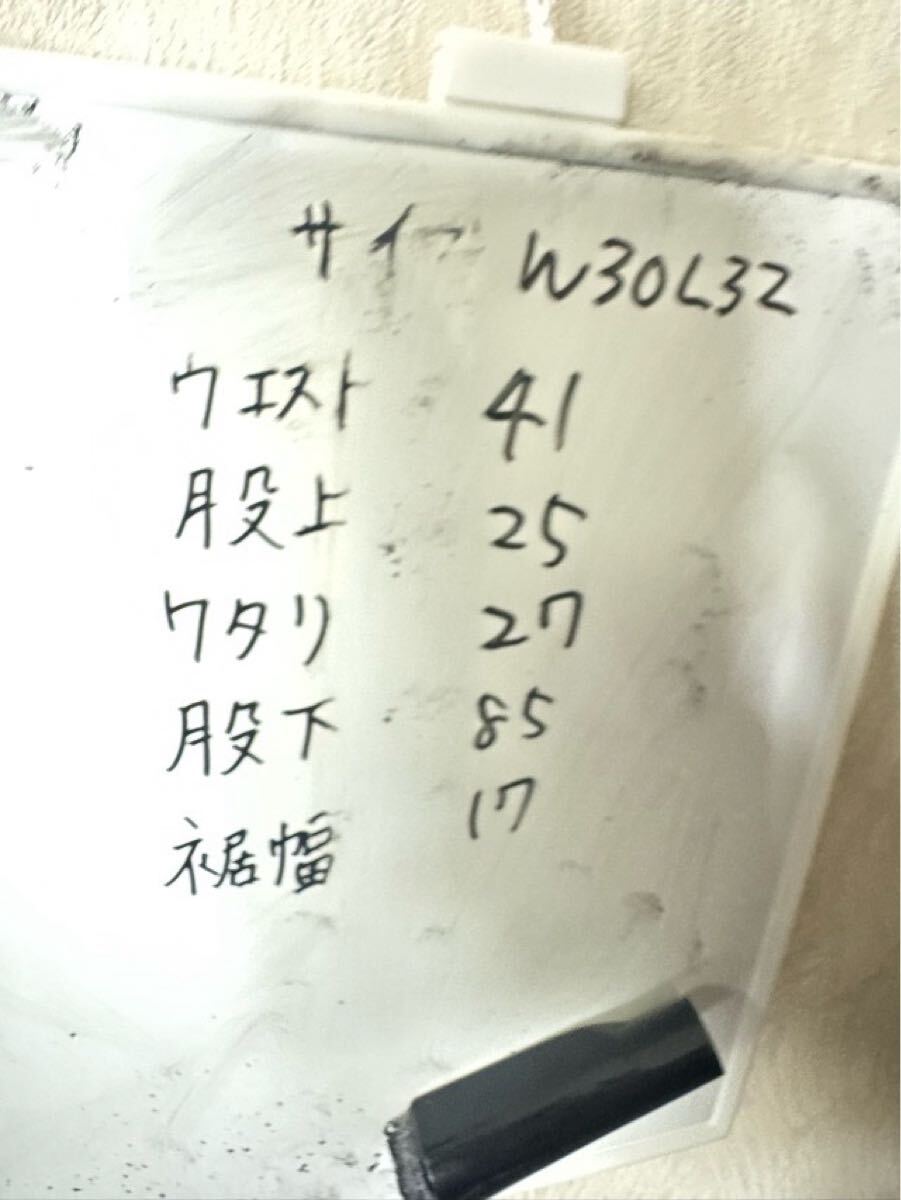 サイズ W30L32
ウエスト 41
股上 25
ワタリ 27
股下 85
裾幅 17